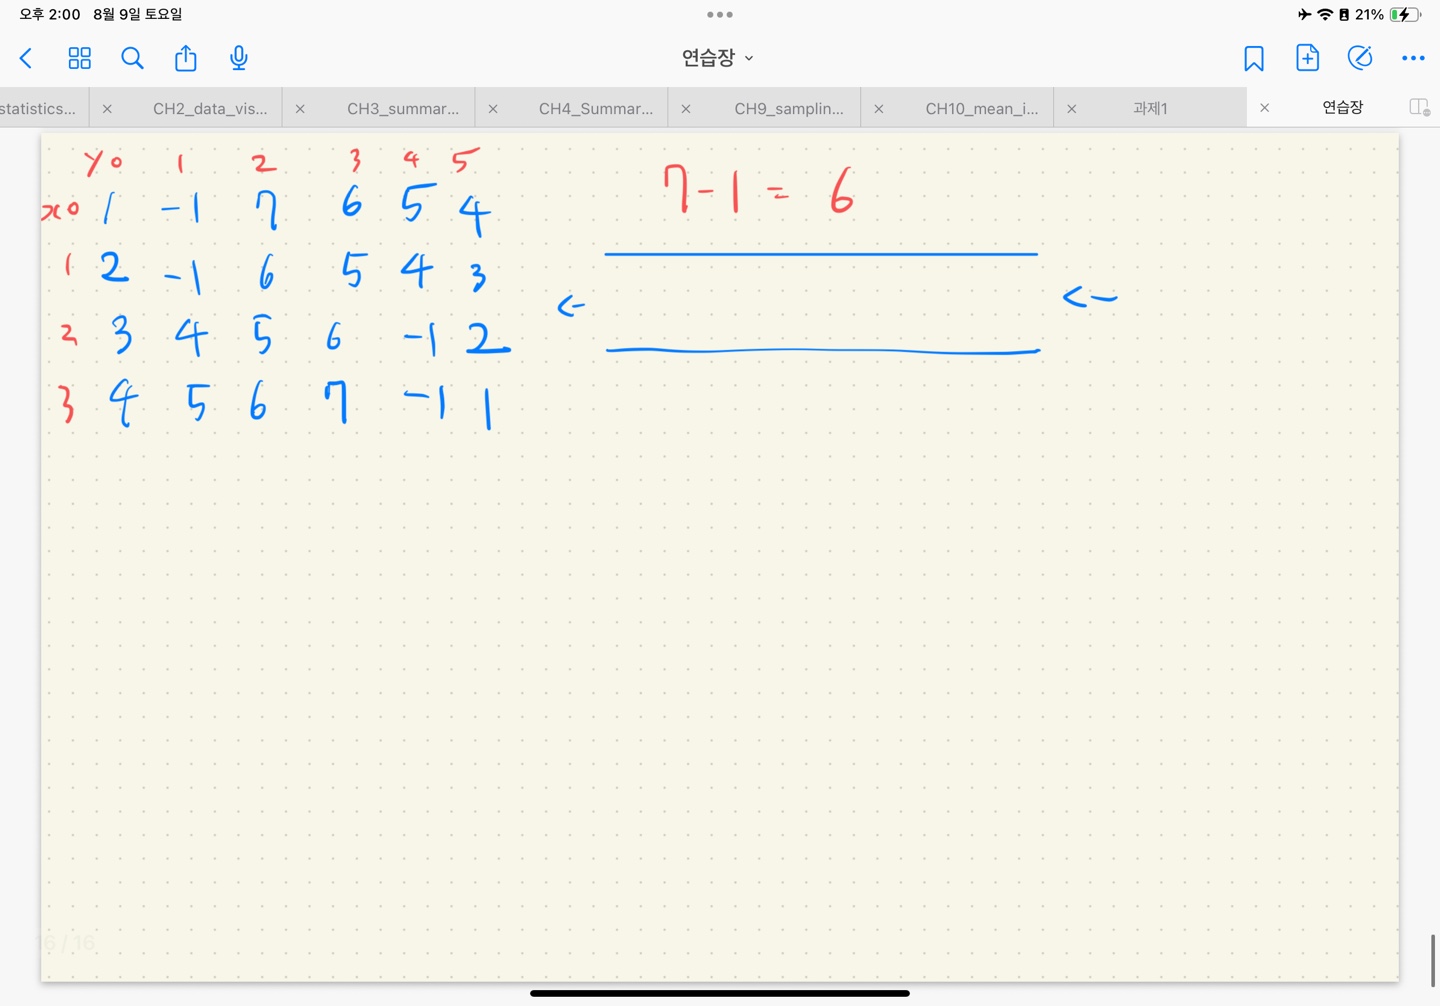 오후 2:00 8월 9일 토요일
21%
연습장
statistics... CH2_data_vis... CH3_summar... CH4_Summar... CH9_samplin... CH10_mean_i... 과제1 연습장
y 0 1 2 3 4 5
x 0 1 -1 7 6 5 4
1 2 -1 6 5 4 3
2 3 4 5 6 -1 2
3 4 5 6 7 -1 1
7-1 = 6
←
←
16 / 16